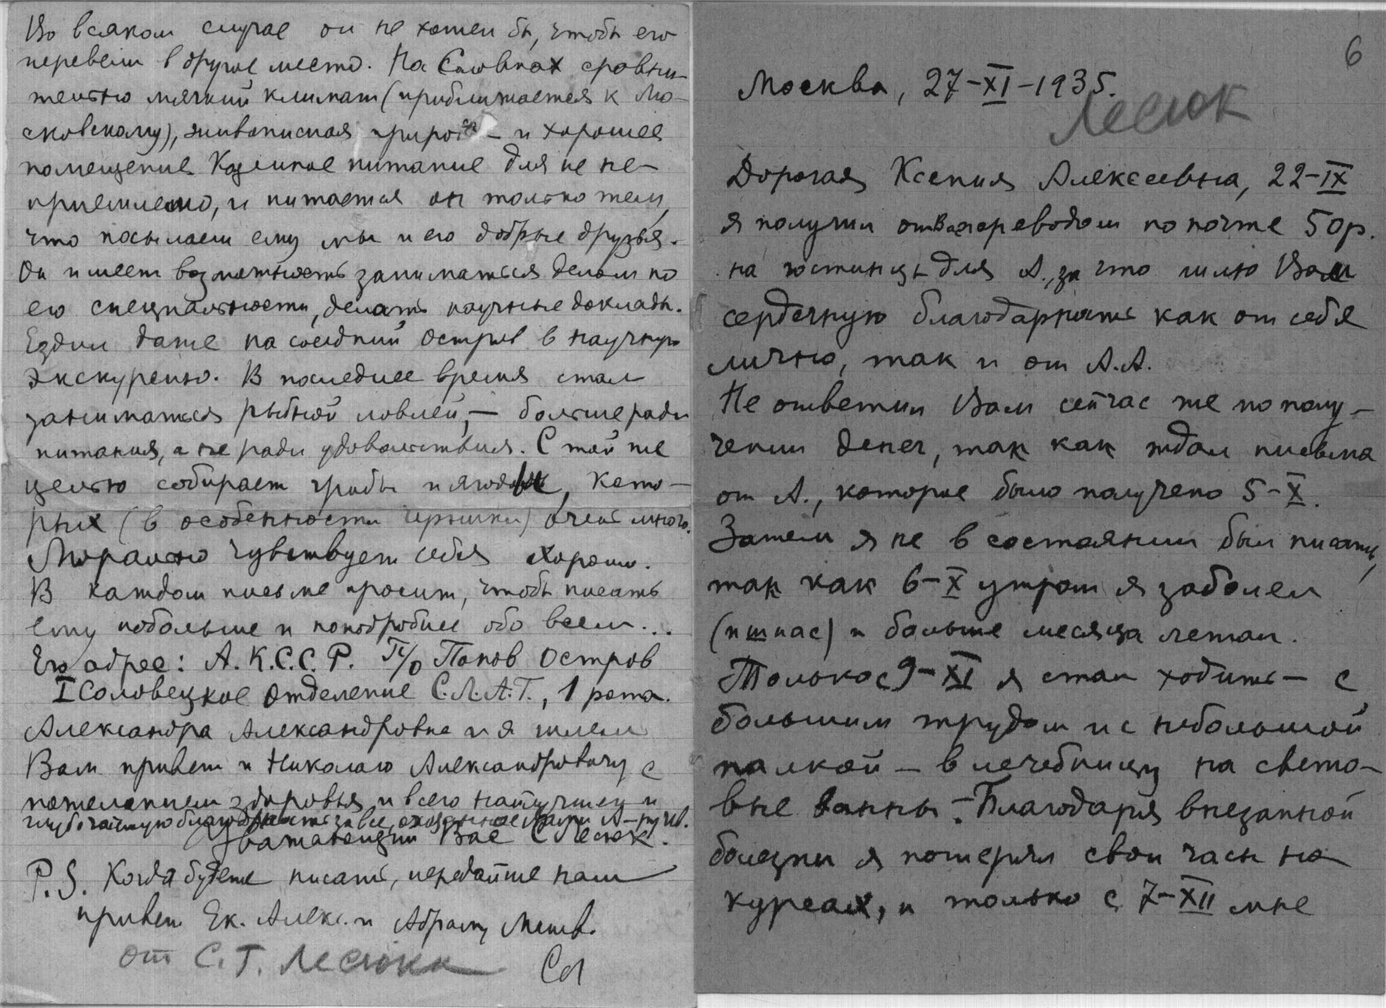 Во всяком случае он не хотел бы, чтобы его
перевели в другое место. На Соловках сравни-
тельно мягкий климат (приближается к Мо-
сковскому), живописная природа и хорошее
помещение. Казенное питание для не не-
приемлемо, и питается он только тем,
что посылаем ему мы и его добрые друзья.
Он имеет возможность заниматься делом по
его специальности, делать научные доклады.
Ездил даже на соседний остров в научную
экскурсию. В последнее время стал
заниматься рыбной ловлей, – больше ради
питания, а не ради удовольствия. С той же
целью собирает грибы и ягоды, кото-
рых (в особенности черники) очень много.
Морально чувствует себя хорошо.
В каждом письме просит, чтобы писать
ему побольше и поподробнее обо всем...
Его адрес: А.К.С.С.Р. П/о Попов Остров
I Соловецкое отделение С.Л.А.Г., 1 рота.
Александра Александровна и я шлем
Вам привет и Николаю Александровичу с
пожеланием здоровья и всего наилучшего и
глубочайшую благодарность за все, оказанное Вами А–ру
Уважающий Вас С Лесюк.
P.S. Когда будете писать, передайте наш
привет Ек. Алекс. и Абраму Матв.
от С.Г. Лесюка
СЛ
6
Москва, 27-XI-1935.
Лесюк
Дорогая Ксения Алексеевна, 22-IX
я получил от Вас переводом по почте 50р.
на гостинцы для А., за что шлю Вам
сердечную благодарность как от себя
лично, так и от А.А.
Не ответил Вам сейчас же по полу-
чении денег, так как ждал письма
от А., которое было получено 5-X.
Затем я не в состоянии был писать,
так как 6-X утром я заболел
(ишиас) и больше месяца лежал.
Только с 9-XI я стал ходить – с
большим трудом и с небольшой
палкой – в лечебницу на свето-
вые ванны. – Благодаря внезапной
болезни я потерял свои часы на
курсах, и только с 7-XII мне